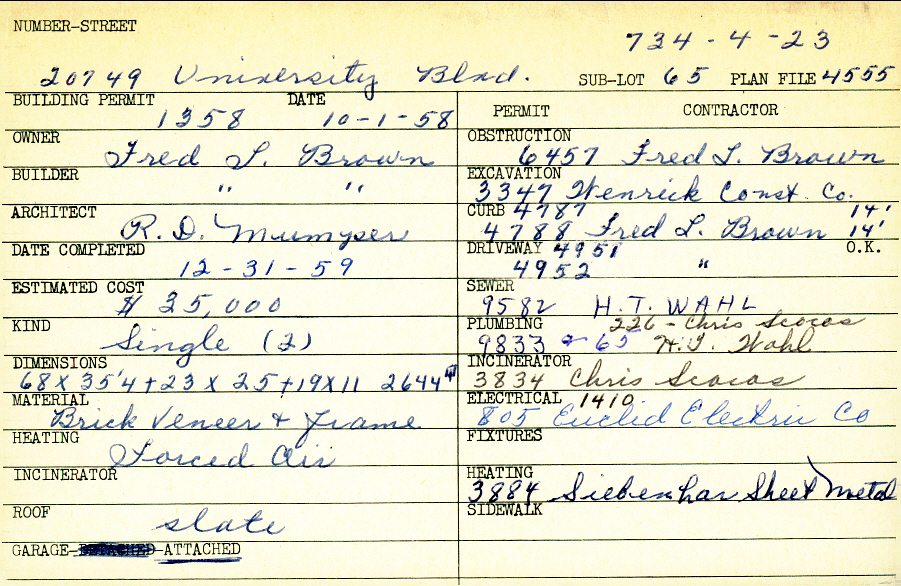 NUMBER-STREET
734-4-23
20749 University Blvd. SUB-LOT 65 PLAN FILE 4555
BUILDING PERMIT DATE
1358 10-1-58
PERMIT CONTRACTOR
OWNER
Fred L. Brown
BUILDER
" "
ARCHITECT
R. D. Mumyser
DATE COMPLETED
12-31-59
ESTIMATED COST
$ 35,000
KIND
Single (2)
DIMENSIONS
68 X 35'4 + 23 X 25 + 19 X 11 2644
MATERIAL
Brick Veneer + Frame
HEATING
Forced Air
INCINERATOR
ROOF
slate
GARAGE- -ATTACHED
OBSTRUCTION
6457 Fred L. Brown
EXCAVATION
3347 Henrick Const. Co.
CURB 4787 14'
4788 Fred L. Brown 14'
DRIVEWAY 4951 O.K.
4952 "
SEWER
9582 H.T. WAHL
PLUMBING 226 - Chris Scocos
9833 + 65 H.T. Wahl
INCINERATOR
3834 Chris Scocos
ELECTRICAL 1410
805 Euclid Electric Co
FIXTURES
HEATING
3884 Siebenhar Sheet Metal
SIDEWALK